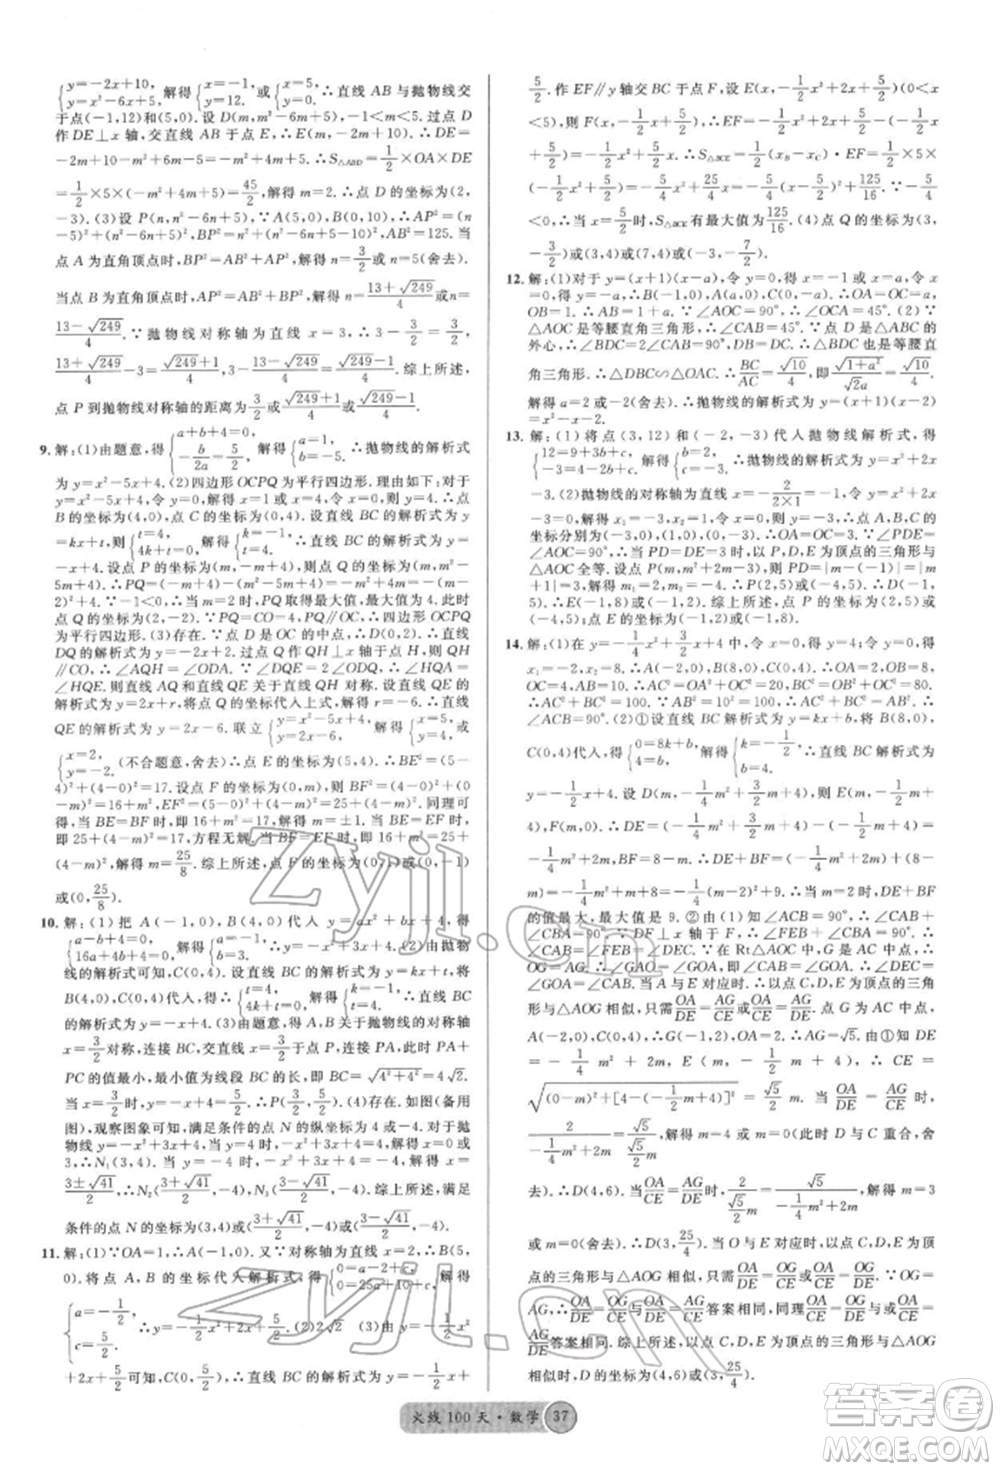 {y=-2x+10, y=x²-6x+5, 解得{x=-1, y=12. 或{x=5, y=0. ∴直线 AB 与抛物线交
于点(-1,12)和(5,0). 设 D(m,m²-6m+5),-1<m<5. 过点 D
作 DE⊥x 轴,交直线 AB 于点 E,∴E(m,-2m+10). ∴DE=
-2m+10-m²+6m-5=-m²+4m+5. ∴S△ABD=1/2×OA×DE
=1/2×5×(-m²+4m+5)=45/2,解得 m=2. ∴点 D 的坐标为(2,
-3). (3)设 P(n,n²-6n+5),∵A(5,0),B(0,10),∴AP²=(n-
5)²+(n²-6n+5)²,BP²=n²+(n²-6n+5-10)²,AB²=125. 当
点 A 为直角顶点时,BP²=AB²+AP²,解得 n=3/2或 n=5(舍去).
当点 B 为直角顶点时,AP²=AB²+BP²,解得 n=(13+√249)/4或 n=
(13-√249)/4. ∵抛物线对称轴为直线 x=3,∴3-3/2=3/2,
(13+√249)/4-3=(√249+1)/4,3-(13-√249)/4=(√249-1)/4. 综上所述,
点 P 到抛物线对称轴的距离为3/2或(√249+1)/4或(√249-1)/4.
9. 解:(1)由题意,得{a+b+4=0, -b/2a=5/2. 解得{a=1, b=-5. ∴抛物线的解析式
为 y=x²-5x+4. (2)四边形 OCPQ 为平行四边形. 理由如下:对
于 y=x²-5x+4,令 y=x²-5x+4=0,解得 x=1或4,令 x=0,则 y=4. ∴点
B 的坐标为(4,0),点 C 的坐标为(0,4). 设直线 BC 的解析式为
y=kx+t,则{t=4, 4k+t=0, 解得{k=-1, t=4. ∴直线 BC 的解析式为 y=
-x+4. 设点 P 的坐标为(m,-m+4),则点 Q 的坐标为(m,m²-
5m+4). ∴PQ=(-m+4)-(m²-5m+4)=-m²+4m=-(m-
2)²+4. ∵-1<0,∴当 m=2时,PQ 取得最大值4,此时点 P,
点 Q 的坐标为(2,-2). ∴PQ=CO=4,PQ∥OC,∴四边形 OCPQ
为平行四边形. (3)存在. ∵D 是 OC 的中点,∴点 D(0,2). ∴直线
DQ 的解析式为 y=-2x+2. 过点 Q 作 QH⊥x 轴于点 H,则 QH
∥CO,∴∠AQH=∠ODA. ∵∠DQE=2∠ODQ,∴∠HQA=
∠HQE. 则直线 AQ 和直线 QE 关于直线 QH 对称. ∴设直线 QE
的解析式为 y=2x+r,将点 Q 的坐标代入上式,解得 r=-6. ∴直线
QE 的解析式为 y=2x-6. 联立{y=x²-5x+4, y=2x-6. 解得{x=5, y=4. 或
{x=2, y=-2. (不合题意,舍去)∴点 E 的坐标为(5,4). ∴BE²=(5-
4)²+(4-0)²=17. 设点 F 的坐标为(0,m),则 BF²=(4-0)²+
(m-0)²=16+m²,EF²=(5-0)²+(4-m)²=25+(4-m)². 当
BE=BF 时,即16+m²=17,解得 m=±1. 当 BE=EF 时,
即25+(4-m)²=17,方程无解. 当 BF=EF 时,即16+m²=25+
(4-m)²,解得 m=25/8. 综上所述,点 F 的坐标为(0,1)或(0,-1)
或(0,25/8).
10. 解:(1)把 A(-1,0),B(4,0)代入 y=ax²+bx+4,得
{a-b+4=0, 16a+4b+4=0. 解得{a=-1, b=3. ∴y=-x²+3x+4. (2)由抛物
线的解析式可知,C(0,4). 设直线 BC 的解析式为 y=kx+t,将
B(4,0),C(0,4)代入,得{t=4, 4k+t=0. 解得{k=-1, t=4. ∴直线 BC
的解析式为 y=-x+4. (3)由题意,得 A,B 关于抛物线的对称轴
x=3/2对称,连接 BC,交直线 x=3/2于点 P,此时 PA+PC=PB+
PC 的值最小,最小值为线段 BC 的长=√(4²+4²)=4√2.
当 x=3/2时,y=-x+4=5/2. ∴P(3/2,5/2). (4)存在. 如图(备用
图),观察图象可知,满足条件的点 N 的纵坐标为4或-4. 对于抛
物线 y=-x²+3x+4,当 y=4时,-x²+3x+4=4. 解得 x=0或
3. ∴N₁(3,4). 当 y=-4时,-x²+3x+4=-4. 解得 x=
(3±√41)/2,∴N₂((3+√41)/2,-4),N₃((3-√41)/2,-4). 综上所述,满足
条件的点 N 的坐标为(3,4)或((3+√41)/2,-4)或((3-√41)/2,-4).
11. 解:(1)∵OA=1,∴A(-1,0). 又∵对称轴为直线 x=2,∴B(5,
0). 将点 A,B 的坐标代入解析式,得{0=a-2+c, 0=25a+10+c, 解得
{a=-1/2, c=5/2. ∴y=-1/2x²+2x+5/2. (2)2√2 (3)由 y=-1/2x²
+2x+5/2可知,C(0,5/2). 则直线 BC 的解析式为 y=-1/2x+
5/2. 作 EF∥y 轴交 BC 于点 F,设 E(x,-1/2x²+2x+5/2)(0<
x<5),则 F(x,-1/2x+5/2). ∴EF=-1/2x²+2x+5/2-(-1/2x+5/2)
=-1/2x²+5/2x. ∴S△BCE=1/2×(xB-xC)·EF=1/2×5×
(-1/2x²+5/2x)=-5/4x²+25/4x=-5/4(x-5/2)²+125/16. ∵-5/4
<0,∴当 x=5/2时,S△BCE有最大值为125/16. (4)点 Q 的坐标为(3,
-3/2)或(3,4)或(7,4)或(-3,-7/2).
12. 解:(1)对于 y=(x+1)(x-a),令 y=0,得 x=-1或 a,令 x=0,
得 y=-a. ∴B(-1,0),A(a,0),C(0,-a). ∴OA=OC=a.
∴△AOC 是等腰直角三角形. ∵∠AOC=90°,∴∠OCA=45°. (2)∵
△AOC 是等腰直角三角形,∴∠OAC=45°. ∵点 D 是△ABC 的
外心,∴∠BDC=2∠BAC=90°,DB=DC. ∴△BDC 也是等腰直
角三角形. ∴△DBC∽△OAC. ∴BC/AC=√10/4,即√(1+a²)/(√2a)=√10/4.
解得 a=2或-2(舍去). ∴抛物线的解析式为 y=(x+1)(x-
2)=x²-x-2.
13. 解:(1)将点(3,12)和(-2,-3)代入抛物线解析式,得
{12=9+3b+c, -3=4-2b+c. 解得{b=2, c=-3. ∴抛物线的解析式为 y=x²+2x
-3. (2)抛物线的对称轴为直线 x=-2/(2×1)=-1. 令 y=x²+2x
-3=0,解得 x₁=-3,x₂=1. 令 x=0,则 y=-3,∴点 A,B,C 的
坐标分别为(-3,0),(1,0),(0,-3). ∴OA=OC=3. ∵∠PDE=
∠AOC=90°,∴当 PD=DE=3时,以 P,D,E 为顶点的三角形与
△AOC 全等. 设点 P(m,n),则 PD=DE=3,∴|m-(-1)|=|m
+1|=3. 解得 m₁=2,m₂=-4. ∴P(2,5)或(-4,5). ∵E(-1,2)
或(-1,8). 综上所述,点 P 的坐标为(2,5)或
(-4,5),点 E 的坐标为(-1,2)或(-1,8).
14. 解:(1)在 y=-1/4x²+3/2x+4中,令 x=0,得 y=4,令 y=0,得
x₁=-2,x₂=8. ∴A(-2,0),B(8,0),C(0,4). ∴OA=2,OB=8,
OC=4,AB=10. ∴AC²=OA²+OC²=20,BC²=OB²+OC²=
80. ∴AC²+BC²=100. ∵AB²=10²=100,∴AC²+BC²=AB².
∴∠ACB=90°. (2)①设直线 BC 解析式为 y=kx+b,将 B(8,0),
C(0,4)代入,得{0=8k+b, 4=b. 解得{k=-1/2, b=4. ∴直线 BC 解析式为
y=-1/2x+4. 设 D(m,-1/4m²+3/2m+4),则 E(m,-1/2m+
4). ∴DE=(-1/4m²+3/2m+4)-(-1/2m+4)=
-1/4m²+2m,BF=8-m. ∴DE+BF=(-1/4m²+2m)+
(8-m)=-1/4(m-2)²+9. ∴当 m=2时,DE+BF
的值最大,最大值为9. ②由(1)知∠ACB=90°,∴∠CAB
+∠CBA=90°. ∵DF⊥x 轴于 F,∴∠FEB+∠CBA=90°.
∴∠CAB=∠FEB=∠DEC. ∵在 Rt△AOC 中,G 是 AC 中点,
∴OG=AG. ∴∠GAO=∠GOA,即∠CAB=∠GOA.
∴∠DEC=∠CAB=∠GOA. 当 A 与 E 对应时,以点 C,D,E 为顶点的三角
形与△AOG 相似,只需OA/DE=AG/CE或OA/CE=AG/DE. ∵点 G 为 AC 中点,
A(-2,0),C(0,4),∴G(-1,2),OA=2,∴AG=√5. 由①知 DE
=-1/4m²+2m,E(m,-1/2m+4),∴CE=
√(m²+[4-(-1/2m+4)]²)=√5/2m. 当OA/DE=AG/CE时,
2/(-1/4m²+2m)=√5/(√5/2m). 解得 m=4或 m=0(此时 D 与 C 重合,舍
去). ∴D(4,6). 当OA/CE=AG/DE时,2/(√5/2m)=√5/(-1/4m²+2m). 解得 m=3
或 m=0(舍去). ∴D(3,25/4). 当 O 与 E 对应时,以点 C,D,E 为顶
点的三角形与△AOG 相似,只需OA/DE=OG/CE或OA/CE=OG/DE,∵OG=AG,
∴OA/DE=OG/CE与OA/DE=AG/CE答案相同,同理OA/CE=OG/DE与OA/CE=
AG/DE答案相同. 综上所述,以点 C,D,E 为顶点的三角形与△AOG 相
似,则点 D 的坐标为(4,6)或(3,25/4).
火线100天·数学 37
Zyjl.cn
zyjl.cn
答案圈
MXQE.COM